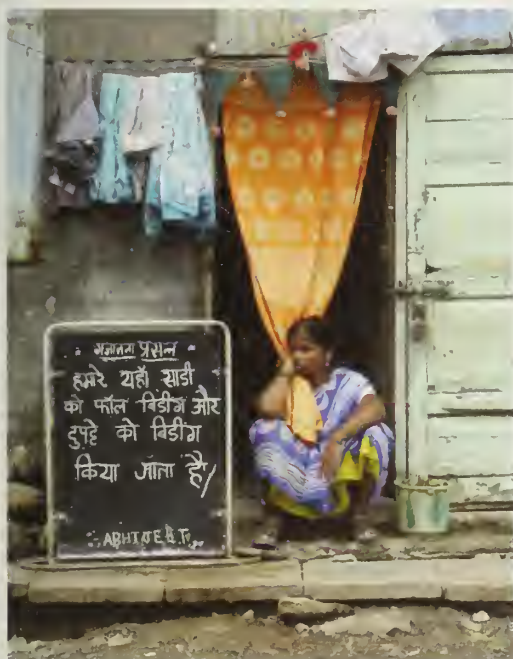 गजानना प्रसन्न
हमारे यहाँ साडी
को फॉल बिडींग और
दुपट्टे को बिडींग
किया जाता है/